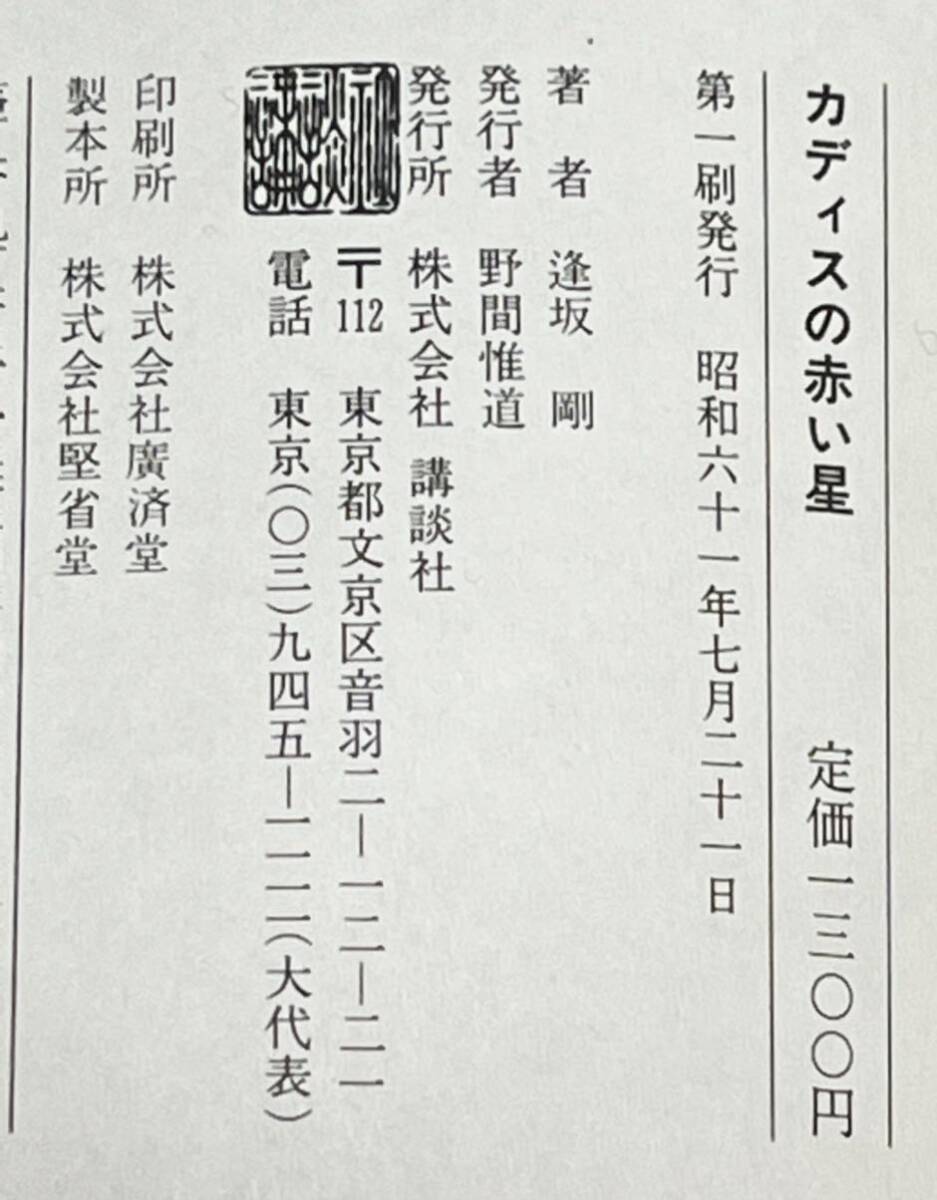 カディスの赤い星 定価一三〇〇円
第一刷発行 昭和六十一年七月二十一日
著者 逢坂 剛
発行者 野間惟道
発行所 株式会社 講談社
〒112 東京都文京区音羽二―一二―二一
電話 東京(〇三)九四五―一一一一(大代表)
印刷所 株式会社廣済堂
製本所 株式会社堅省堂